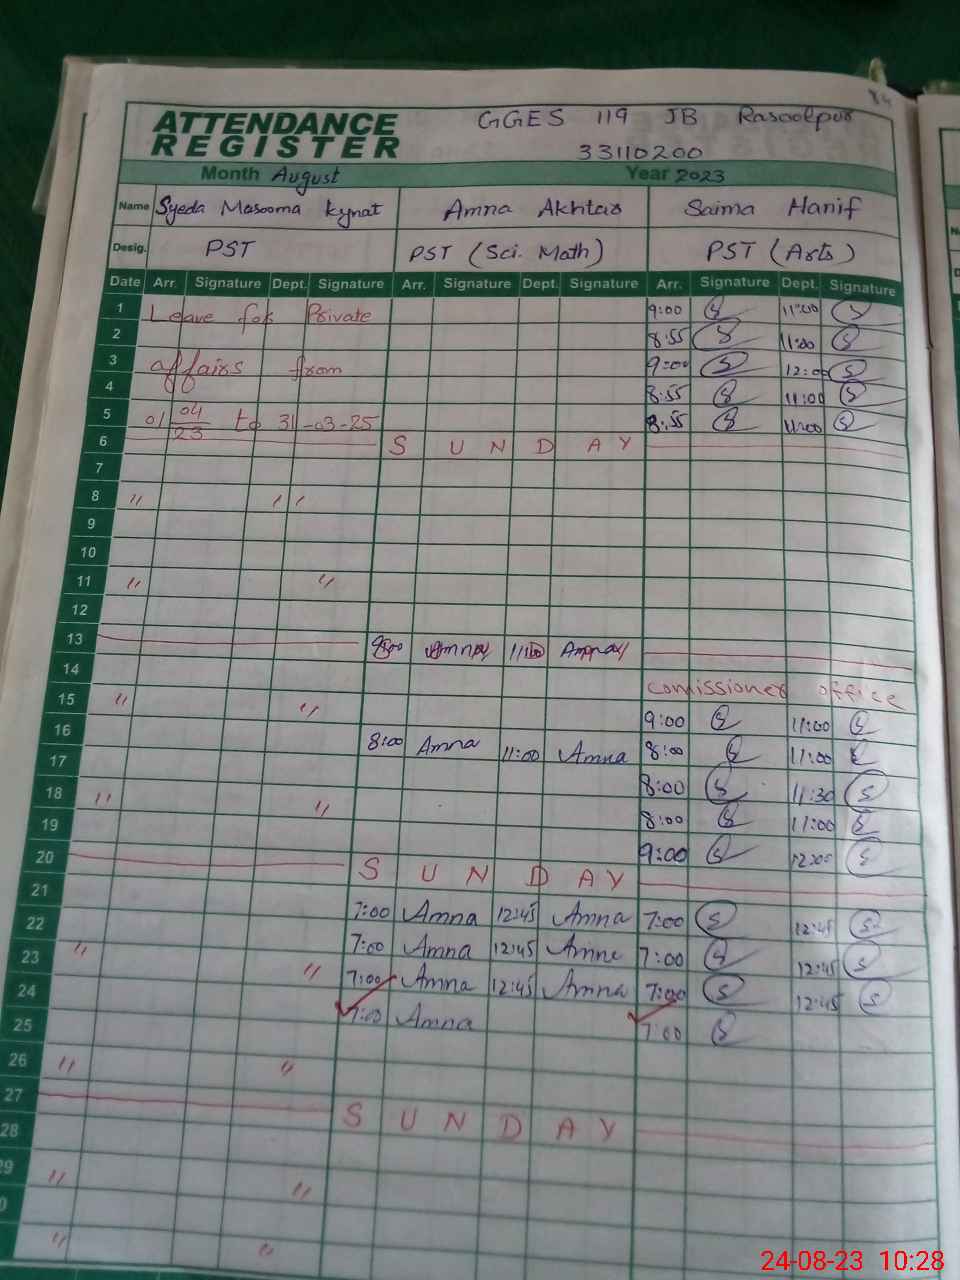 84
ATTENDANCE REGISTER
GGES 119 JB Rasoolpur
33110200
Month August Year 2023
Name Syeda Masooma Kynat Amna Akhtar Saima Hanif
Desig. PST PST (Sci. Math) PST (Arts)
Date Arr. Signature Dept. Signature Arr. Signature Dept. Signature Arr. Signature Dept. Signature
1 Leave for Private 9:00 11:00
2 8:55 11:00
3 affairs from 9:00 12:00
4 8:55 11:00
5 01 04/23 to 31-03-25 8:55 11:00
6 SUNDAY
7
8 " "
9
10
11 " "
12
13 Amna
14
15 " " comissioner office
16 9:00 11:00
17 8:00 Amna 11:00 Amna 8:00 11:00
18 " " 8:00 11:30
19 8:00 11:00
20 9:00
SUNDAY
21
22 7:00 Amna 12:45 Amna 7:00 12:45
23 " " 7:00 Amna 12:45 Amna 7:00 12:45
24 7:00 Amna 12:45 Amna 7:00 12:45
25 7:00 Amna 7:00
26 " "
27 SUNDAY
28
29 " "
" "
24-08-23 10:28